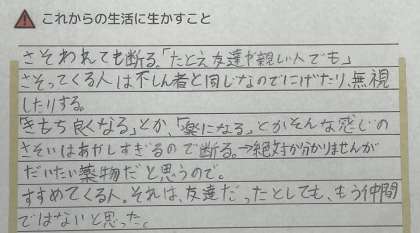 これからの生活に生かすこと
さそわれても断る。「たとえ友達や親しい人でも」
さそってくる人は不しん者と同じなのでにげたり、無視
したりする。
「きもち良くなる」とか、「楽になる」とかそんな感じの
さそいはあやしすぎるので断る。→絶対か分かりませんが
だいたい薬物だと思うので。
すすめてくる人。それは、友達だったとしても、もう仲間
ではないと思った。